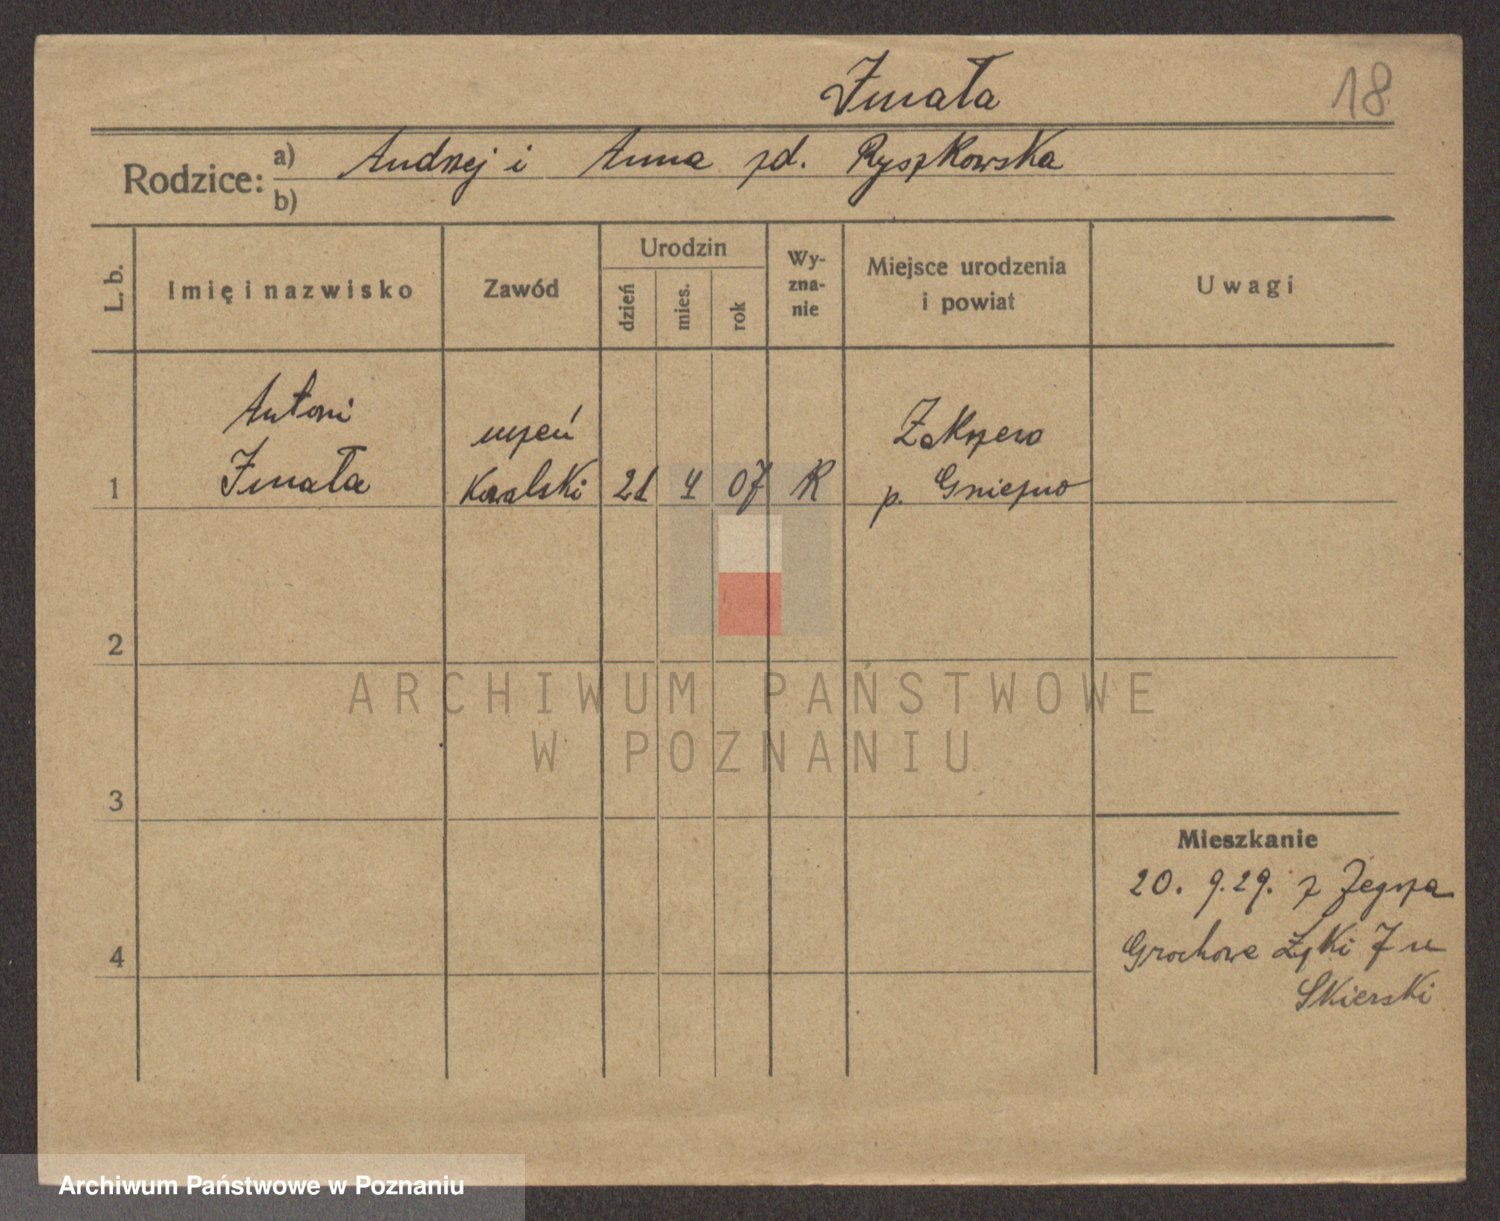 Jmała
18
Rodzice: a) Andrzej i Anna zd. Ryszkowska
b)
L. b.
Imię i nazwisko
Zawód
Urodzin
dzień
mies.
rok
Wy-
zna-
nie
Miejsce urodzenia
i powiat
Uwagi
Antoni
Jmała
uczeń
Kowalski
1
21 4 07 R
p. Gniezno
2
3
4
ARCHIWUM PAŃSTWOWE
W POZNANIU
Mieszkanie
20. 9. 29. z Zegrza
Grochowe Łąki 7 u
Skierski
Archiwum Państwowe w Poznaniu